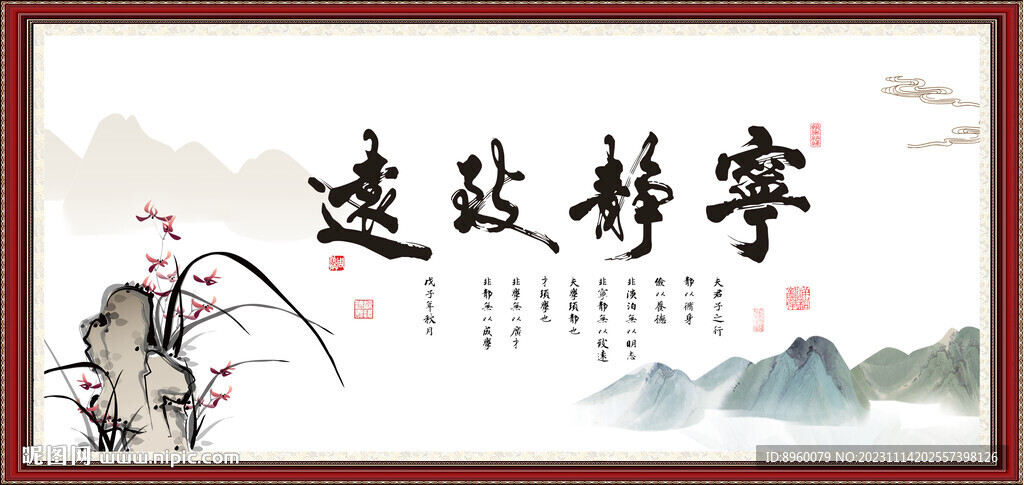 寧靜致遠
夫君子之行
靜以脩身
儉以養德
非淡泊無以明志
非寧靜無以致遠
夫學須靜也
才須學也
非學無以廣才
非靜無以成學
戊子年秋月
昵图网 www.nipic.com
ID:8960079 NO:20231114202557398126